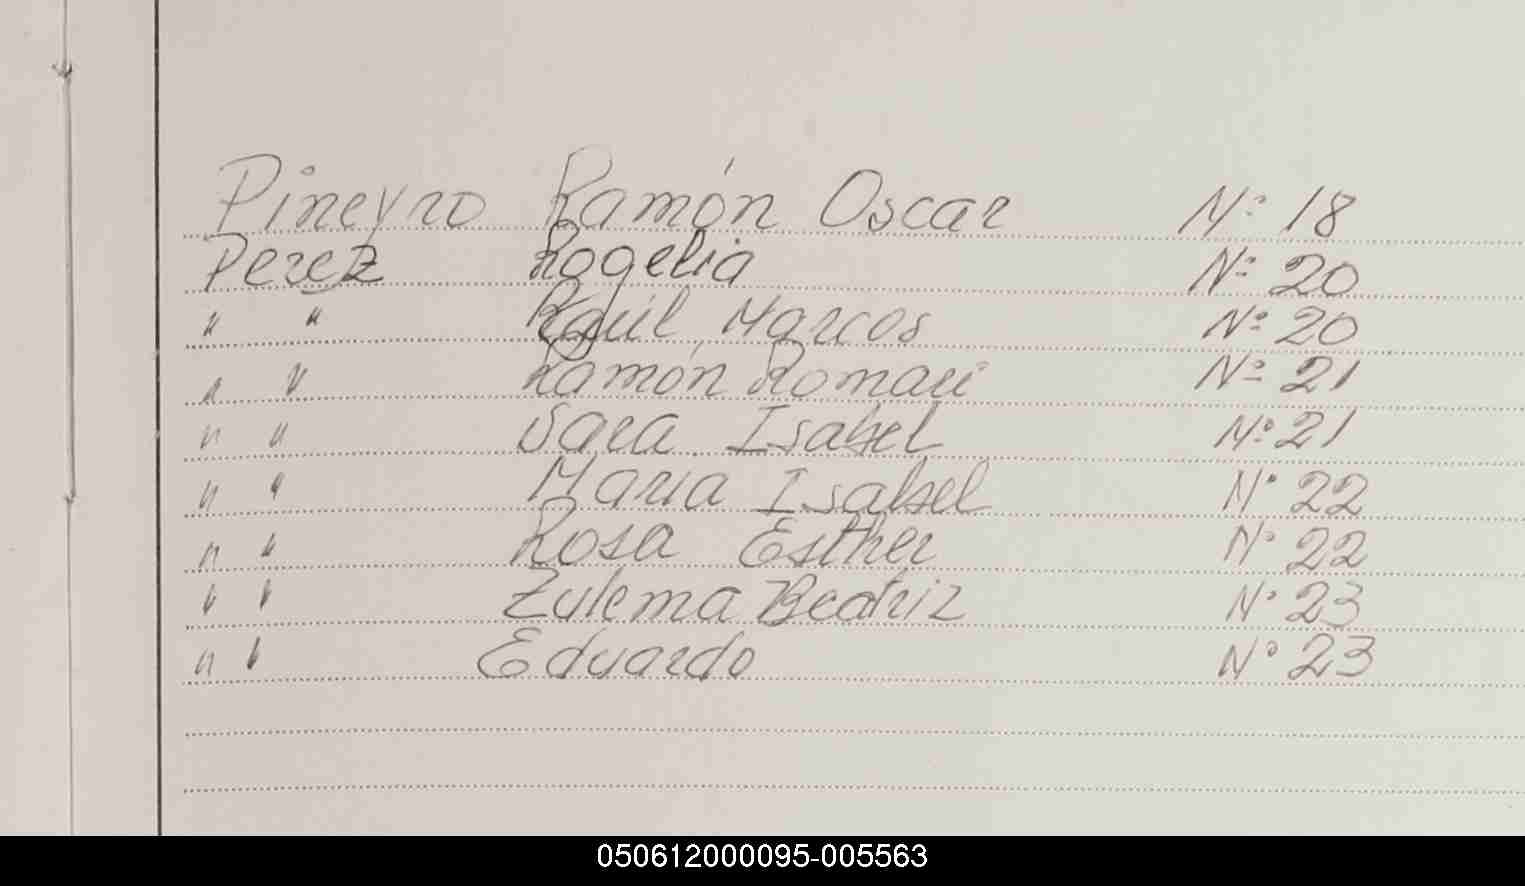 Pineyro Ramón Oscar Nº 18
Perez Rogelia Nº 20
" " Raúl Marcos Nº 20
" " Ramón Nº 21
" " Sara Isabel Nº 21
" " Maria Isabel Nº 22
" " Rosa Esther Nº 22
" " Zulema Beatriz Nº 23
" " Eduardo Nº 23
050612000095-005563